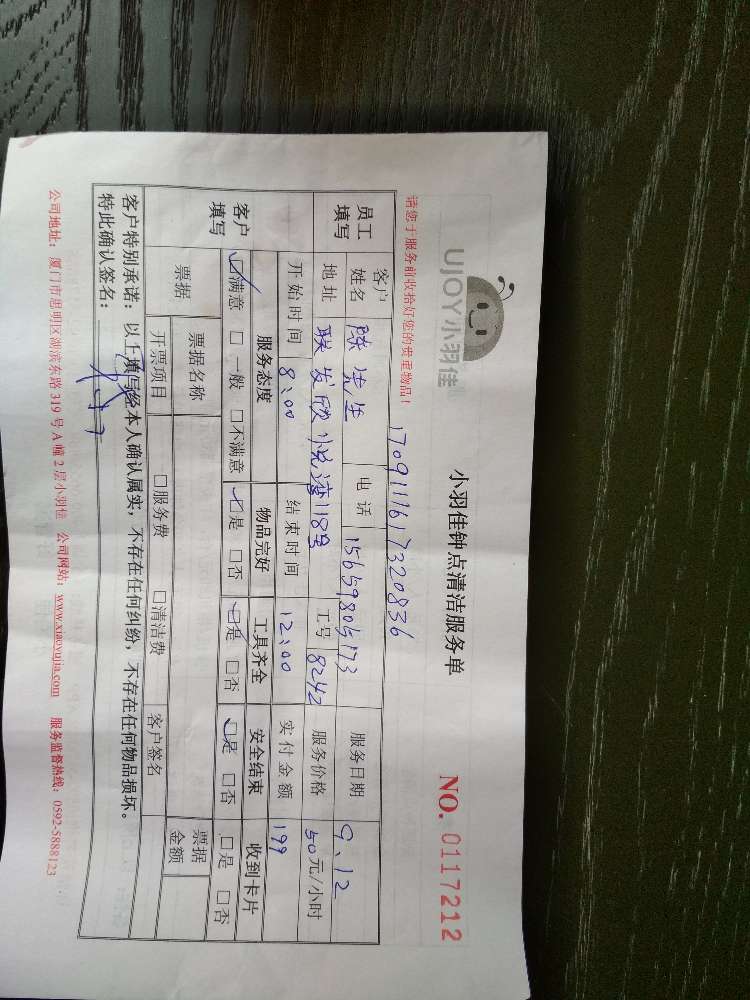 UJOY小羽佳
小羽佳钟点清洁服务单
NO. 0117212
请您于服务前收拾好您的贵重物品！
1709111617320836
员工填写
客户姓名 陈先生 电话 15659805173 服务日期 9.12
地址 联发欣悦湾118号 工号 8242 服务价格 50元/小时
开始时间 8:00 结束时间 12:00 实付金额 199
客户填写
服务态度 物品完好 工具齐全 安全结束 收到卡片
☑满意 □一般 □不满意 ☑是 □否 ☑是 □否 ☑是 □否 □是 □否
票据 票据名称 票据金额
开票项目 □服务费 □清洁费 客户签名
客户特别承诺：以上填写经本人确认属实，不存在任何纠纷，不存在任何物品损坏。
特此确认签名：
公司地址：厦门市思明区湖滨东路319号A幢2层小羽佳 公司网站：www.xiaoyujia.com 服务监督热线：0592-5888123